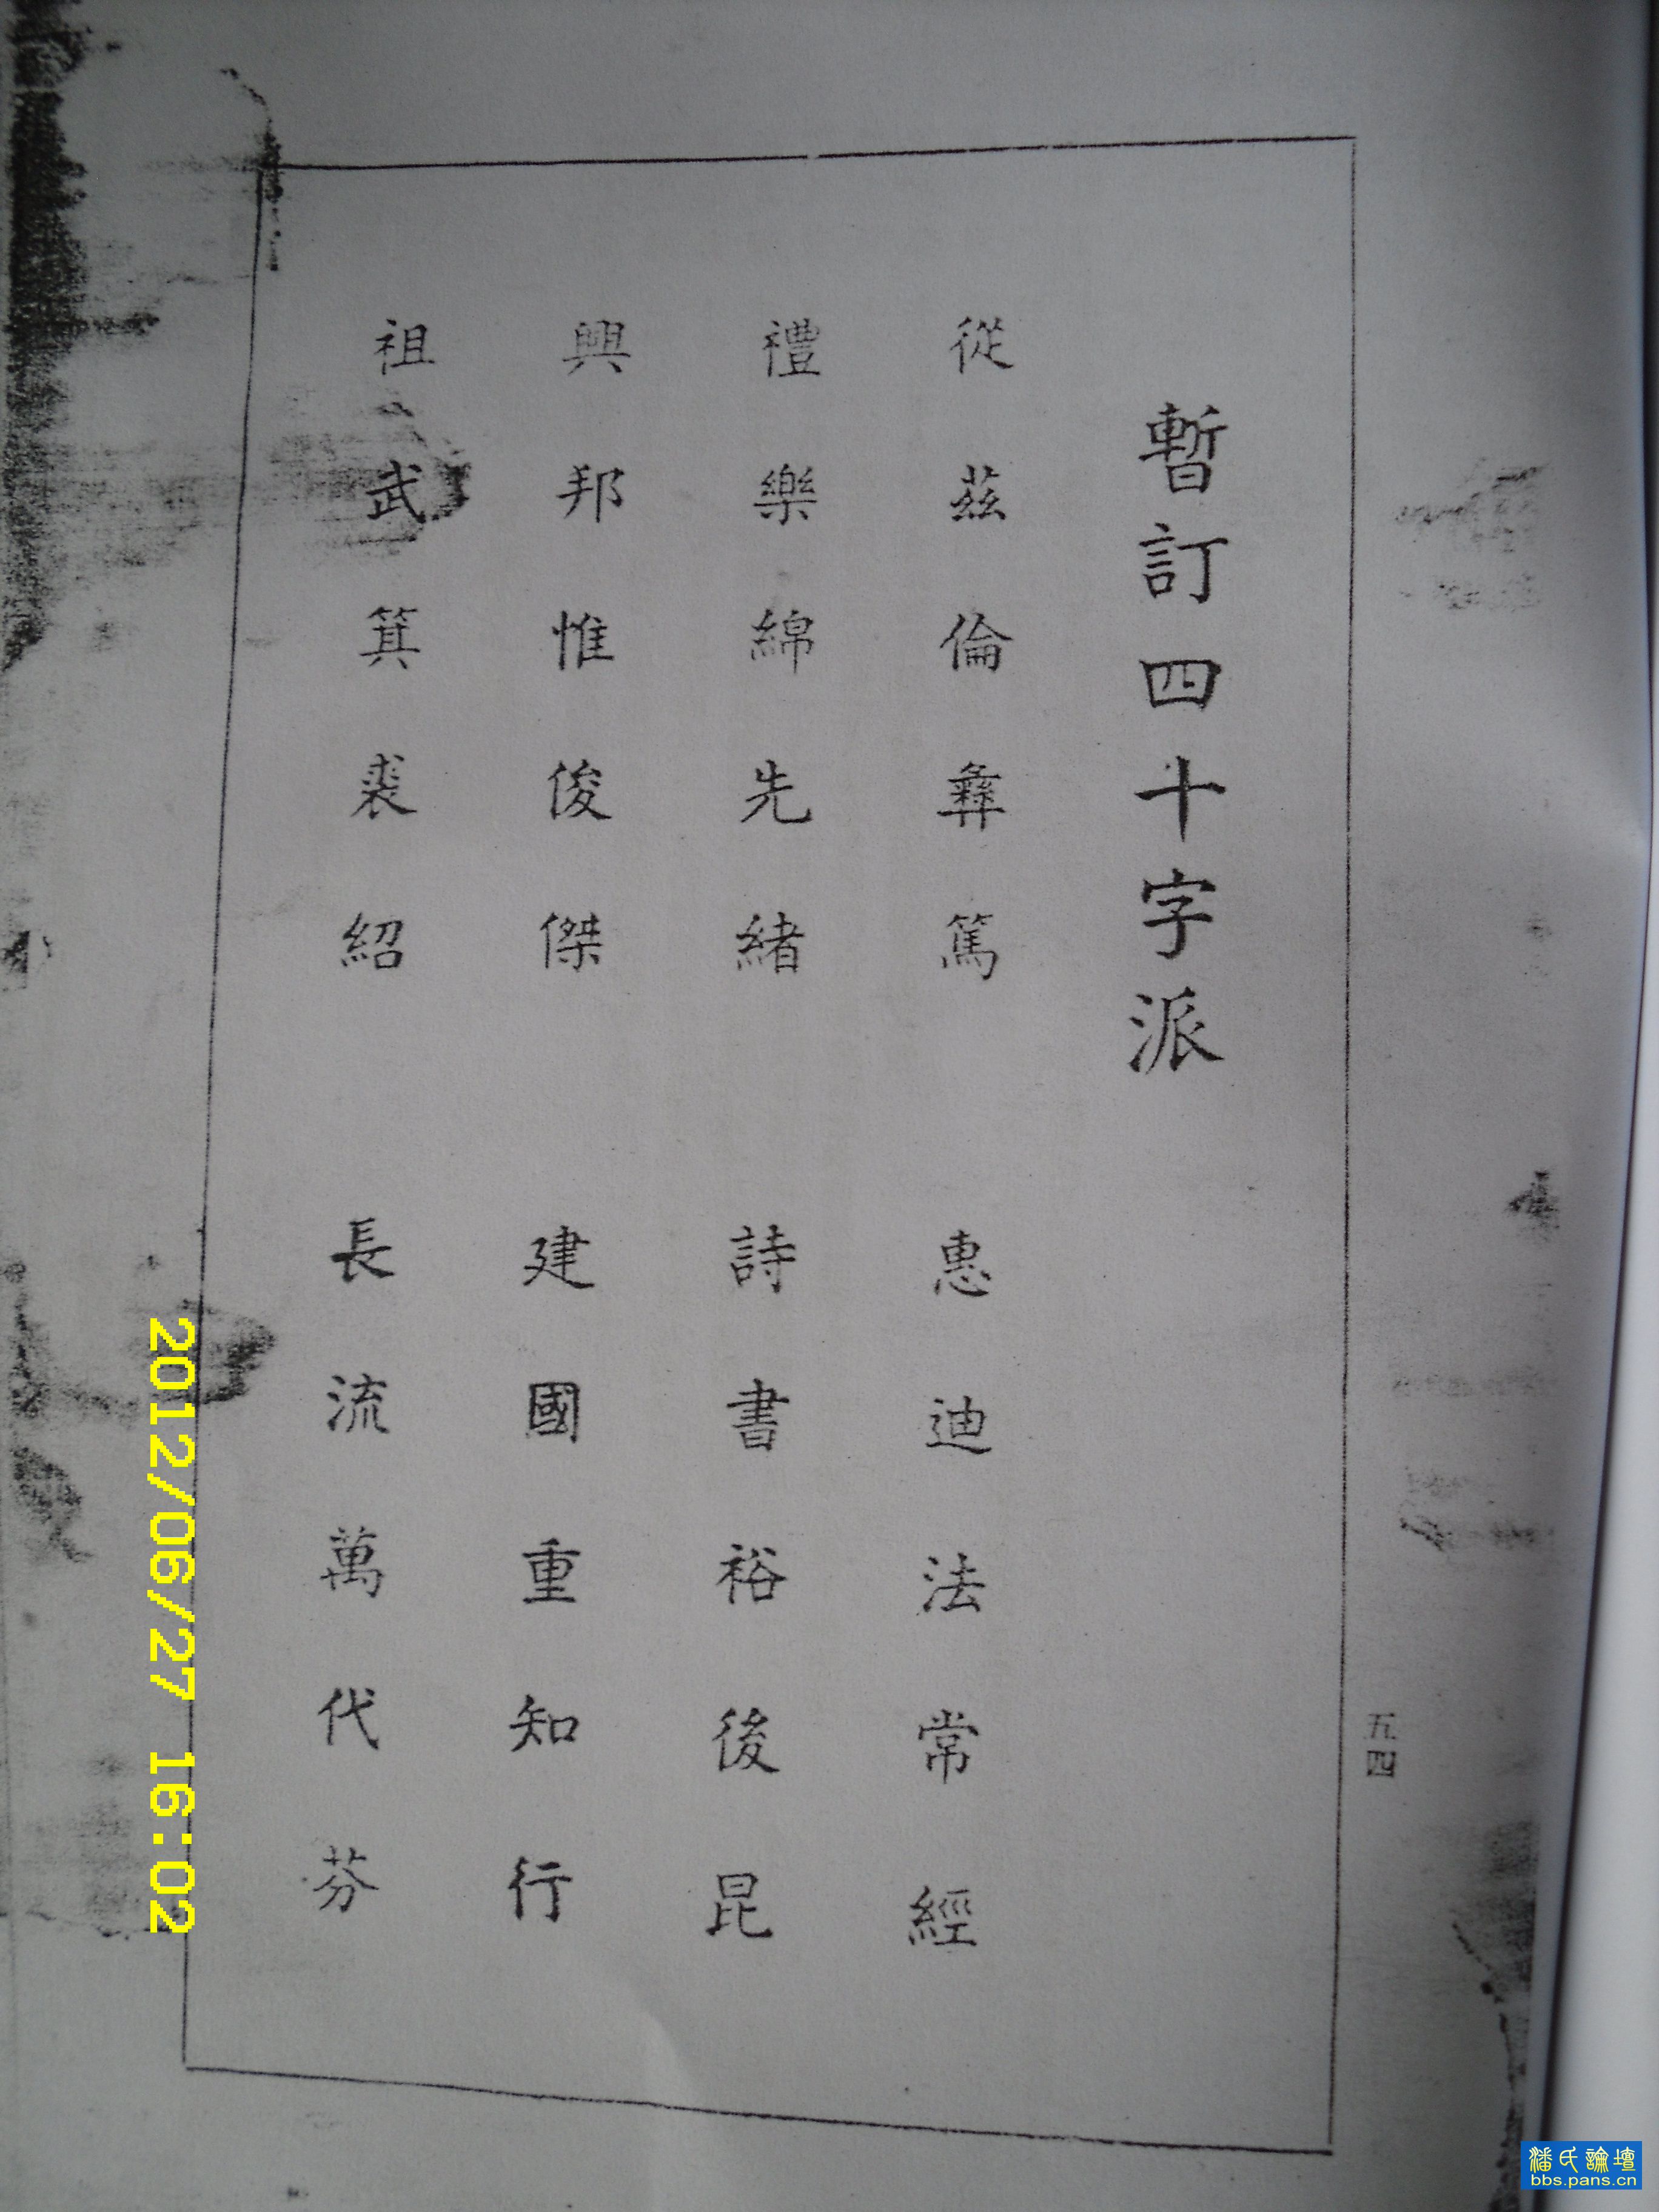 暫訂四十字派
從茲倫彞篤 惠迪法常經
禮樂綿先緒 詩書裕後昆
興邦惟俊傑 建國重知行
祖武箕裘紹 長流萬代芬
五四
2012/06/27 16:02
潘氏論壇
bbs.pans.cn